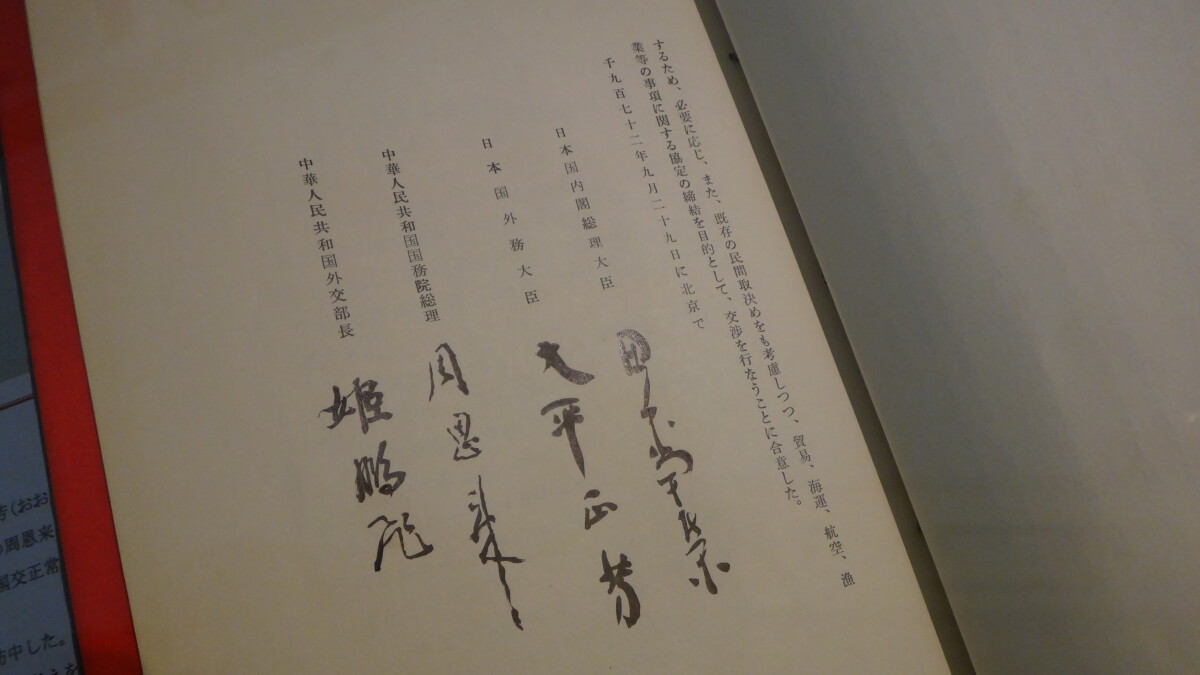 するため、必要に応じ、また、既存の民間取決めをも考慮しつつ、貿易、海運、航空、漁
業等の事項に関する協定の締結を目的として、交渉を行なうことに合意した。
千九百七十二年九月二十九日に北京で
日本国内閣総理大臣 田中角榮
日本国外務大臣 大平正芳
中華人民共和国国務院総理 周恩来
中華人民共和国外交部長 姫鵬飛
芳(おお
の周恩来
国交正常
訪中した。